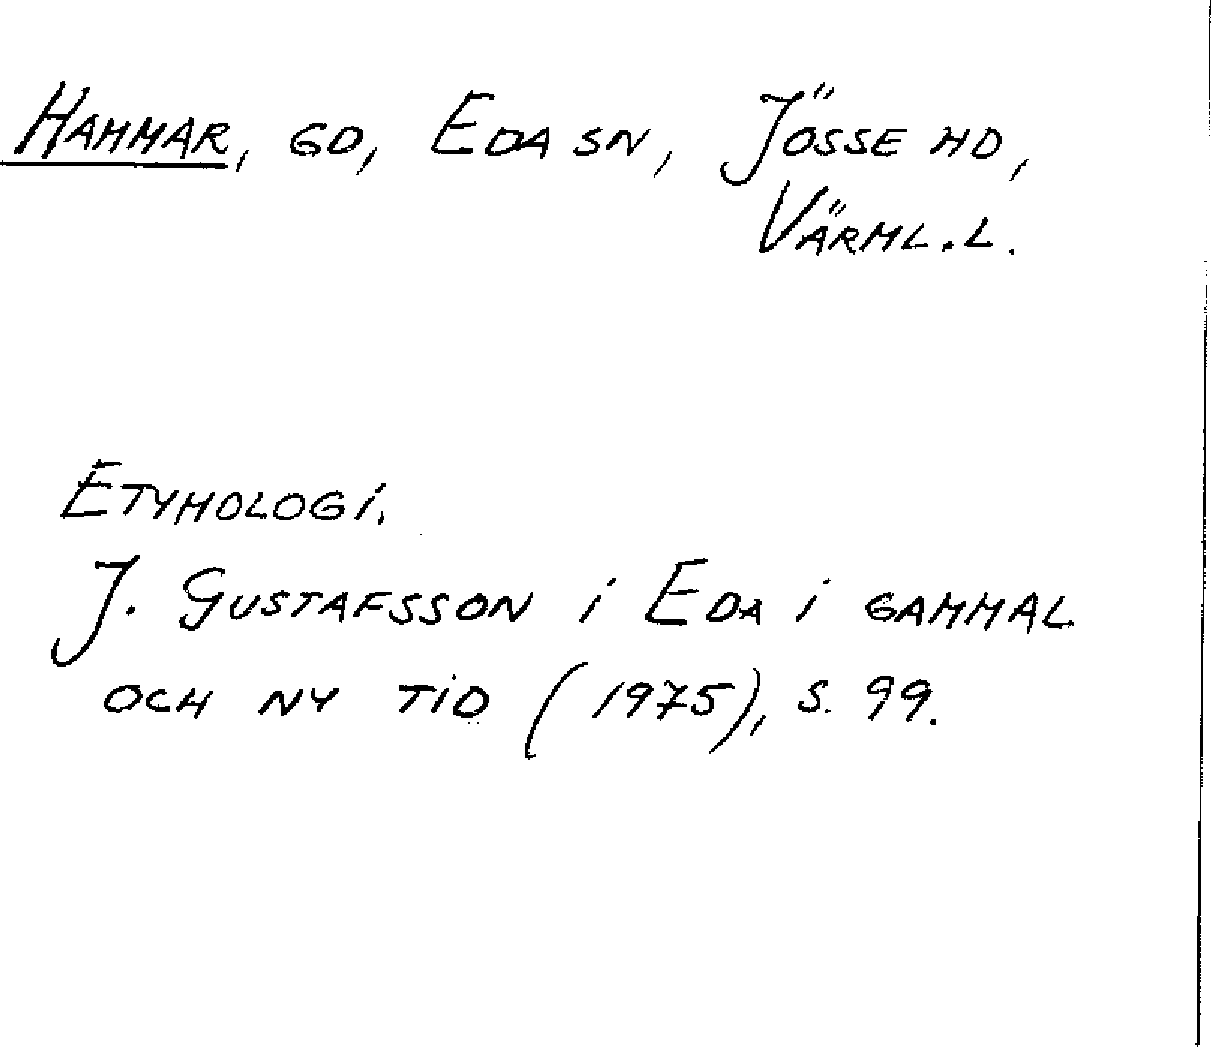 Hammar, gd, Eda sn, Jösse hd,
Värml.l.
Etymologi.
J. Gustafsson i Eda i gammal
och ny tid (1975), s. 99.